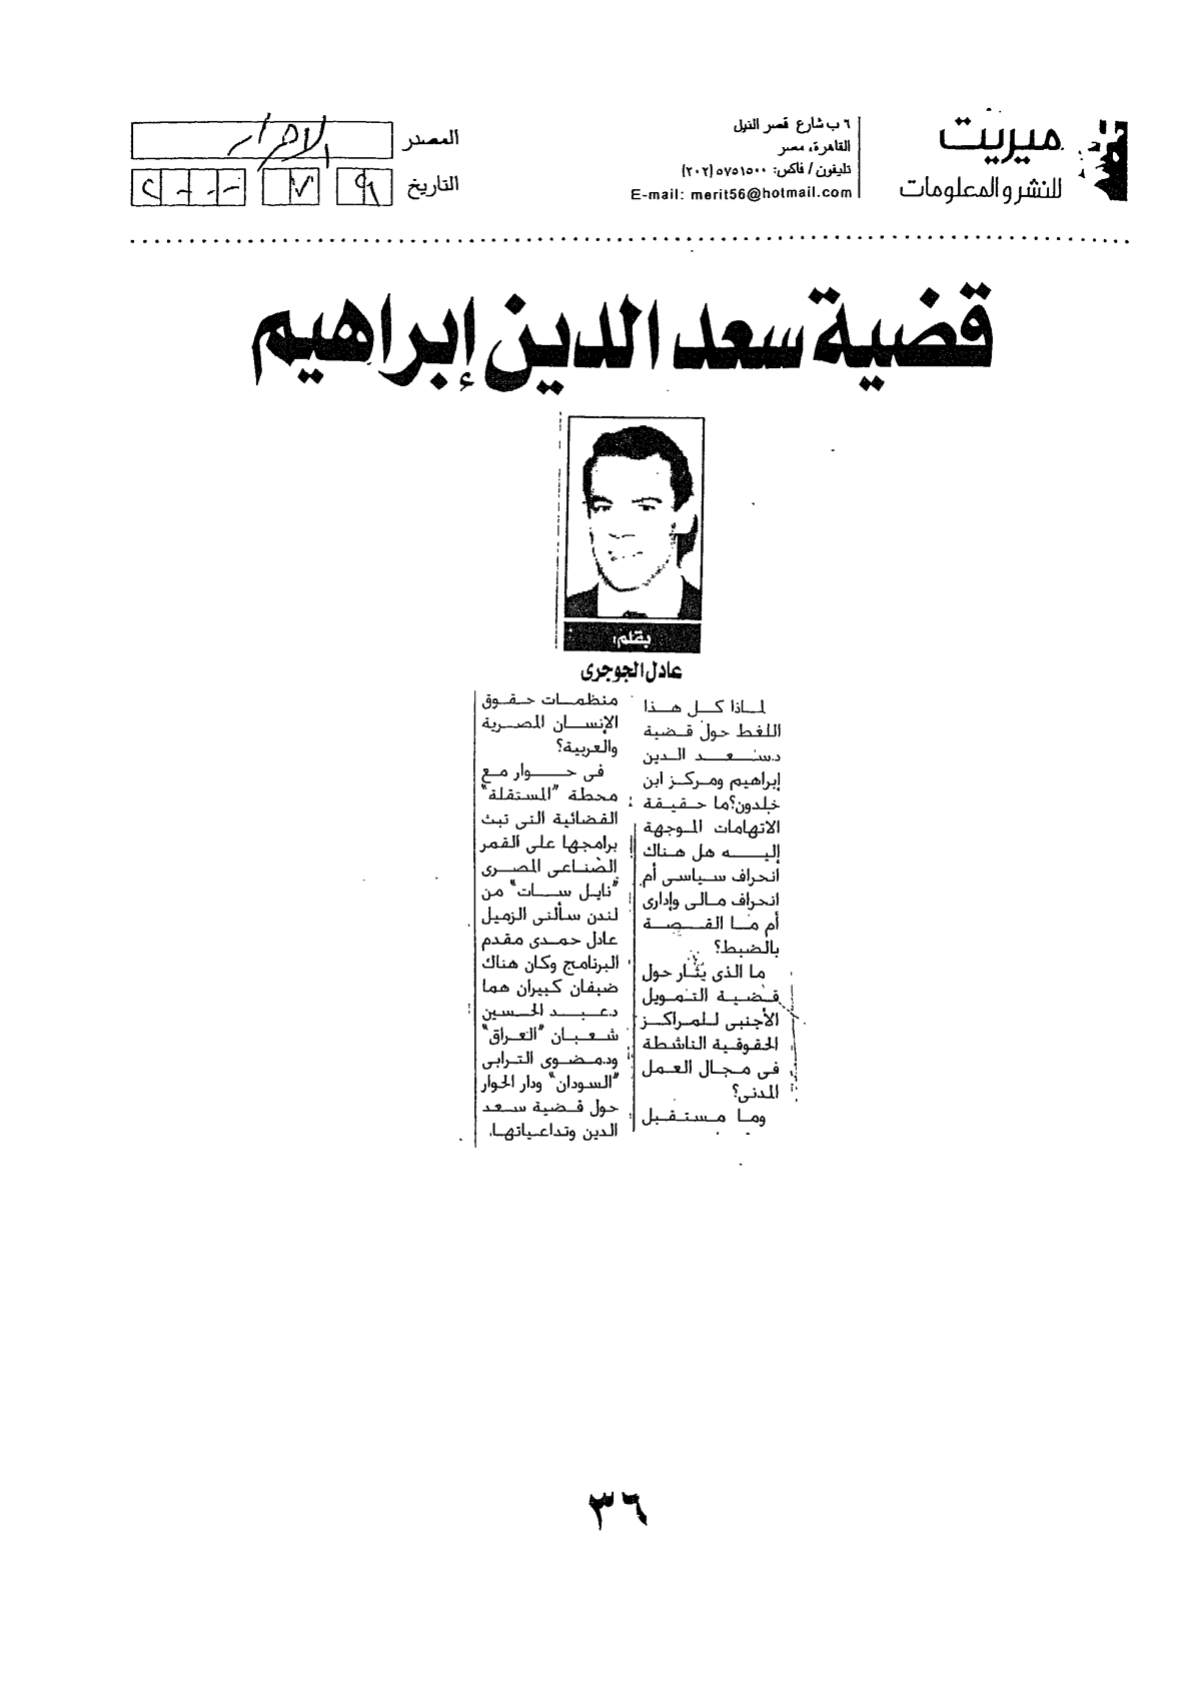 ميريت
للنشر والمعلومات
٦ ب شارع قصر النيل
القاهرة، مصر
تليفون / فاكس: ٥٧٥١٥٠٠ (٢٠٢)
E-mail: merit56@hotmail.com
المصدر الاحرار
التاريخ
قضية سعد الدين إبراهيم
بقلم:
عادل الجوجرى
لماذا كل هذا
اللغط حول قضية
د.سعد الدين
إبراهيم ومركز ابن
خلدون؟ما حقيقة
الاتهامات الموجهة
إليه هل هناك
انحراف سياسى أم
انحراف مالى وإدارى
أم ما القصة
بالضبط؟
ما الذى يثار حول
قضية التمويل
الأجنبى للمراكز
الحقوقية الناشطة
فى مجال العمل
المدنى؟
وما مستقبل
منظمات حقوق
الإنسان المصرية
والعربية؟
فى حوار مع
محطة "المستقلة"
الفضائية التى تبث
برامجها على القمر
الصناعى المصرى
"نايل سات" من
لندن سألنى الزميل
عادل حمدى مقدم
البرنامج وكان هناك
ضيفان كبيران هما
د.عبد الحسين
شعبان "العراق"
ود.مضوى الترابى
"السودان" ودار الحوار
حول قضية سعد
الدين وتداعياتها.
٣٦